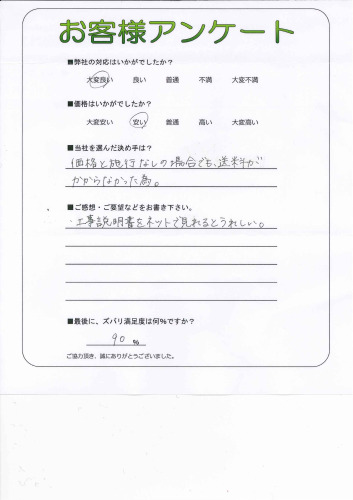 お客様アンケート
■弊社の対応はいかがでしたか?
大変良い 良い 普通 不満 大変不満
■価格はいかがでしたか?
大変安い 安い 普通 高い 大変高い
■当社を選んだ決め手は?
価格と施行なしの場合でも、送料が
かからなかった為。
■ご感想・ご要望などをお書き下さい。
・工事説明書をネットで見れるとうれしい。
■最後に、ズバリ満足度は何%ですか?
90 %
ご協力頂き、誠にありがとうございました。